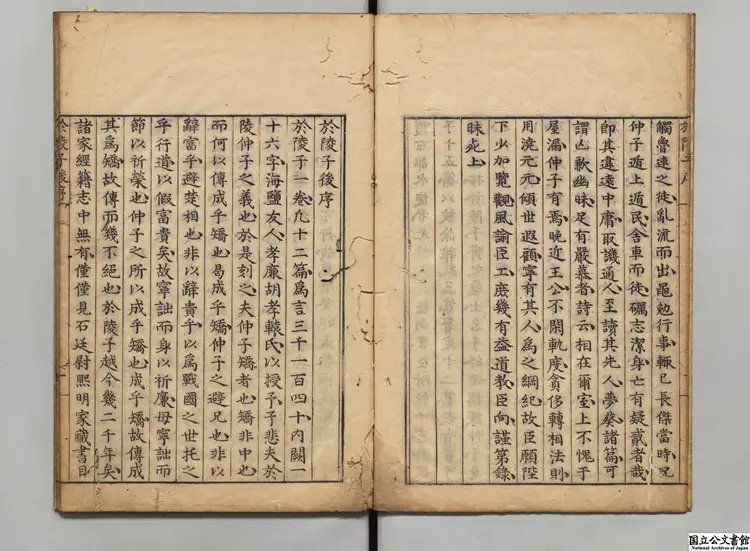 於陵子序
觸魯連之徒亂流而出黽勉行事輒已長傑當時況
仲子遁上遁民舍車而徒礪志潔身亡有疑貳者哉
即其違遠中庸取譏通人至讀其先人夢葵諸篇可
謂凶歉幽昧足有嚴慕者詩云相在爾室上不愧于
屋漏仲子有焉晚近王公不閑軌度貪侈轉相法則
用澆元元傾世遐顧寧有其人爲之綱紀故臣願陛
下少加覽觀風諭臣工庶幾有益道教臣向謹第錄
昧死上
於陵子後序
於陵子一卷凡十二篇爲言三千一百四十内闕一
十六字海鹽友人孝廉胡孝轅氏以授予予悲夫於
陵仲子之義也於是刻之夫仲子矯者也矯非中也
而何以傳成乎矯也曷成乎矯仲子之避兄也非以
辭富乎避楚相也非以辭貴乎以爲戰國之世托之
乎行道以假富貴矣故寧詘而身以祈廉毋寧詘而
節以祈榮也仲子之所以成乎矯也成乎矯故傳成
其爲矯故傳而幾不絕也於陵子越今幾二千年矣
諸家經籍志中無有僅僅見石廷尉熙明家藏書目
於陵子後序
国立公文書館
National Archives of Japan